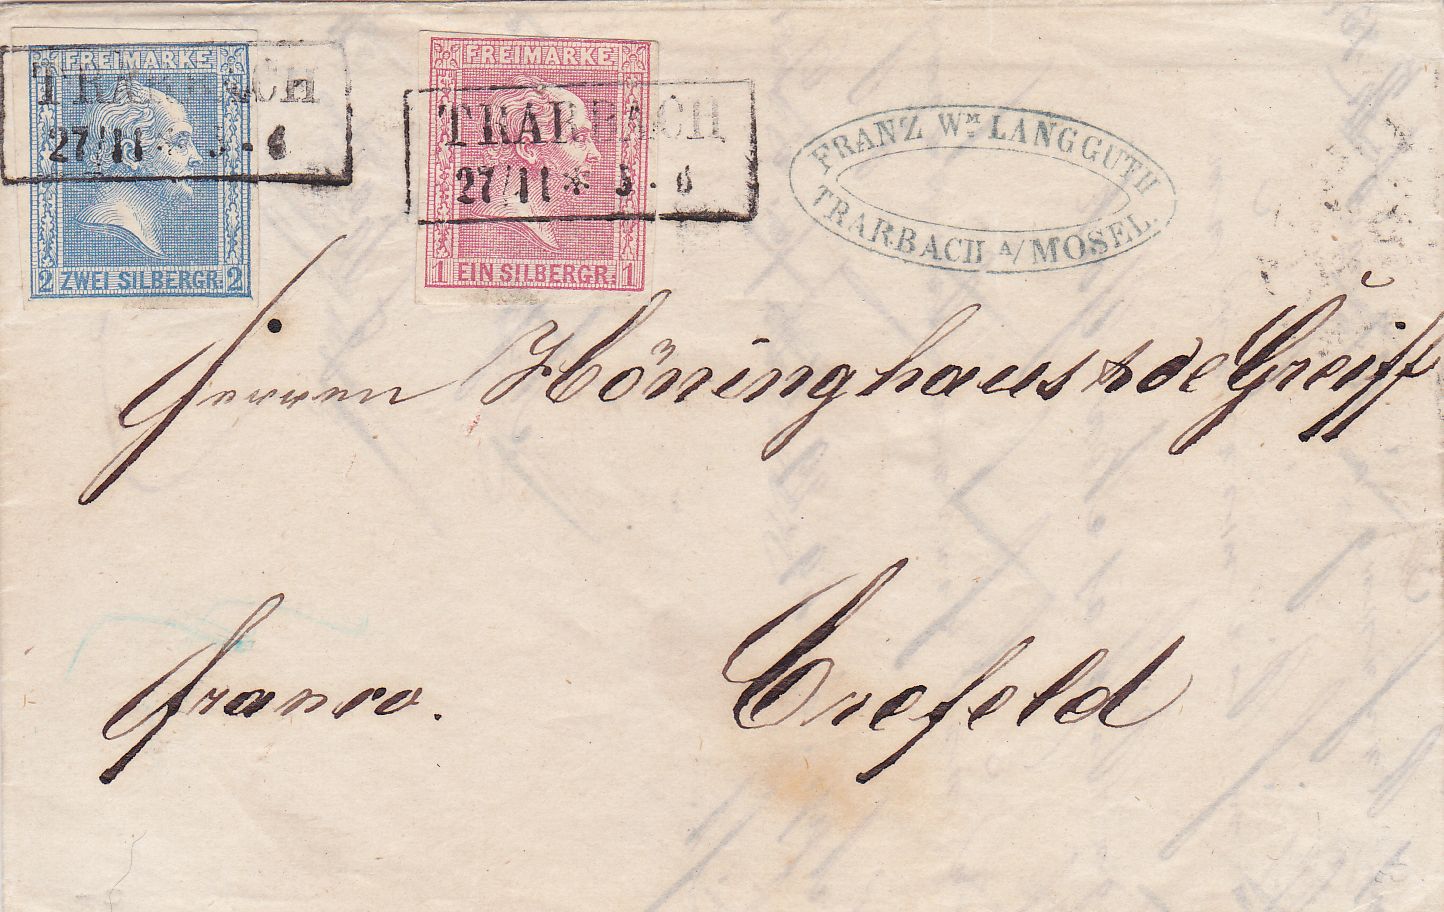 FREIMARKE
2 ZWEI SILBERGR. 2
TRARBACH
27/11 * 5 - 6
FREIMARKE
1 EIN SILBERGR. 1
TRARBACH
27/11 * 5 - 6
FRANZ WM LANGGUTH
TRARBACH A/MOSEL.
Herren Höninghaus & de Greiff
franco.
Crefeld